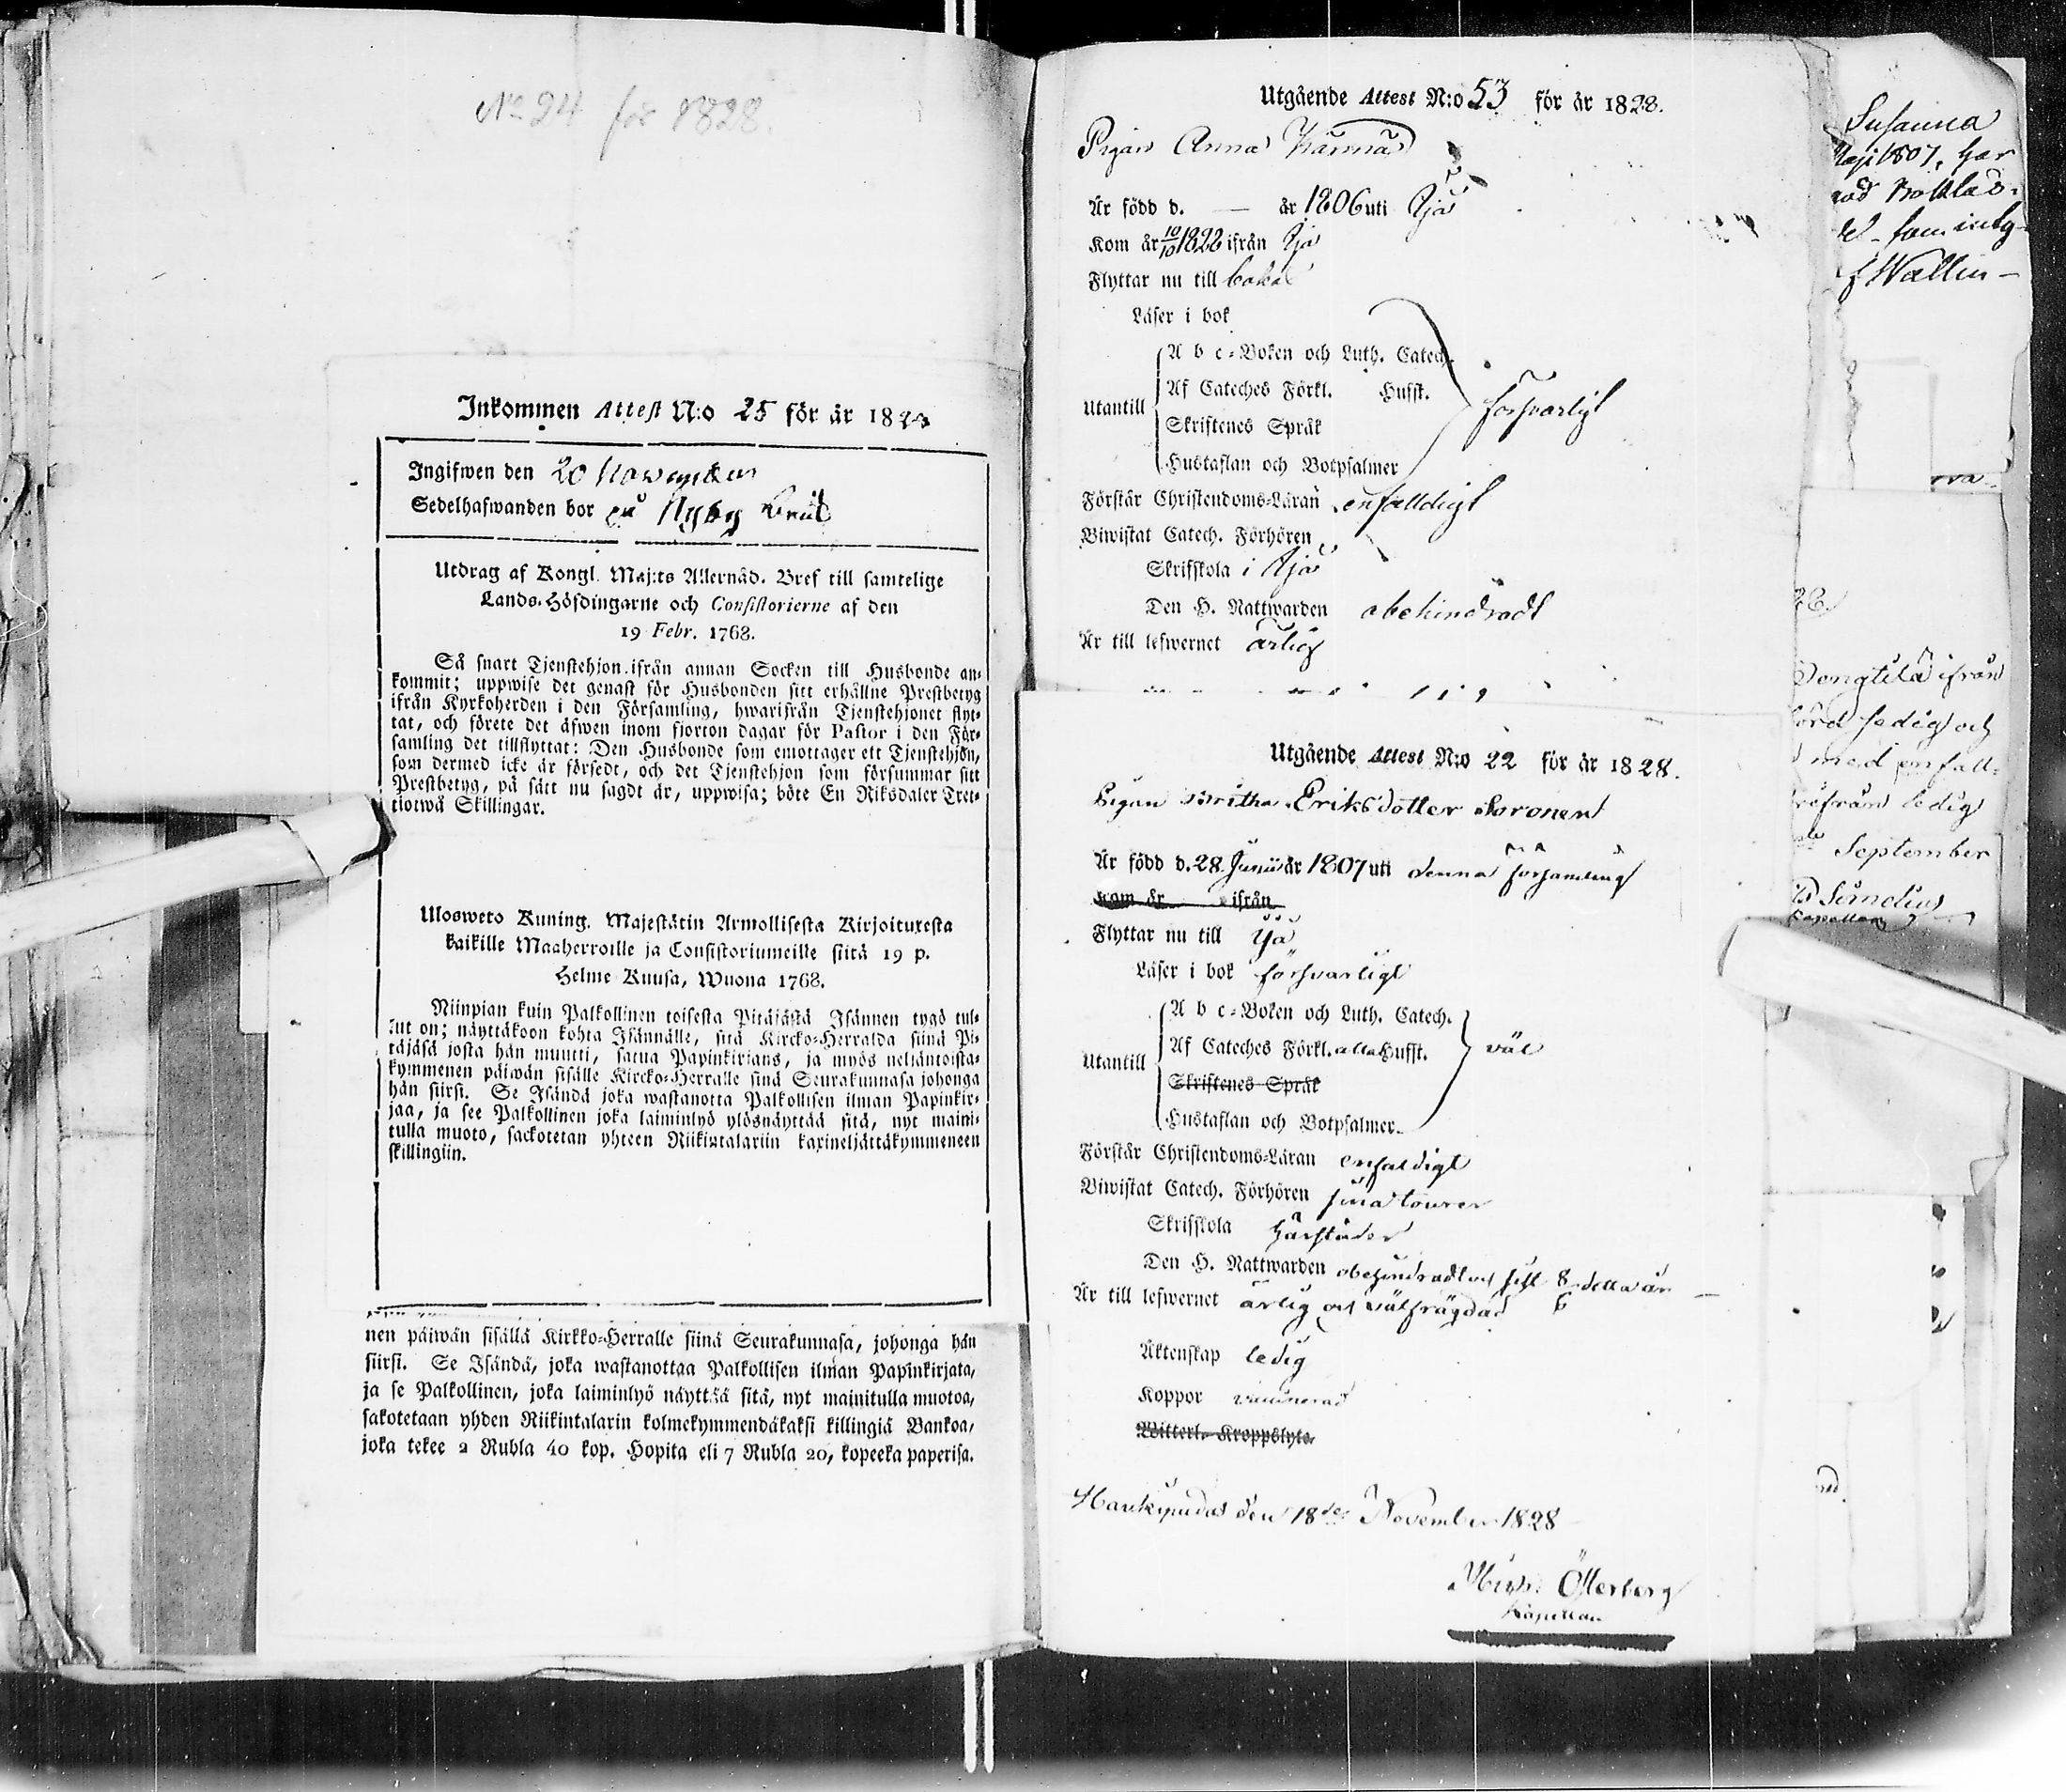 No 24 för 1828.
Inkommen Attest N:o 25 för år 1828
Ingifwen den 20 November
Sedelhafwanden bor på Nyby
Utdrag af Kongl. Maj:ts Allernåd. Bref till samtelige
Lands-Höfdingarne och Consistorierne af den
19 Febr. 1768.
Så snart Tjenstehjon ifrån annan Socken till Husbonde an-
kommit; uppwise det genast för Husbonden sitt erhållne Prestbetyg
ifrån Kyrkoherden i den Församling, hwarifrån Tjenstehjonet flyt-
tat, och förete det äfwen inom fjorton dagar för Pastor i den För-
samling det tillflyttat: Den Husbonde som emottager ett Tjenstehjon,
som dermed icke är försedt, och det Tjenstehjon som försummar sitt
Prestbetyg, på sätt nu sagdt är, uppwisa; böte En Riksdaler Tret-
tiotwå Skillingar.
Ulosweto Kuning. Majestätin Armollisesta Kirjoituxesta
kaikille Maaherroille ja Consistoriumeille siitä 19 p.
Helme Kuusa, Wuona 1768.
Niinpian kuin Palkollinen toisesta Pitäjästä Isännen tygö tul-
lut on; näyttäköön kohta Isännälle, sitä Kircko-Herralda siinä Pi-
täjäsä josta hän muutti, saatua Papinkirians, ja myös neljäntoista-
kymmenen päiwän sisälle Kircko-Herralle siinä Seurakunnasa johonga
hän siirsi. Se Isändä joka wastanotta Palkollisen ilman Papinkir-
jaa, ja see Palkollinen joka laiminlyö ylösnäyttää sitä, nyt maini-
tulla muoto, sackotetan yhteen Riikintalariin kaxineljättäkymmeneen
skillingiin.
nen päiwän sisällä Kirkko-Herralle siinä Seurakunnasa, johonga hän
siirsi. Se Isändä, joka wastanottaa Palkollisen ilman Papinkirjata,
ja se Palkollinen, joka laiminlyö näyttää sitä, nyt mainitulla muotoa,
sakotetaan yhden Riikintalarin kolmekymmendäkaksi killingiä Bankoa,
joka tekee 2 Rubla 40 kop. Hopita eli 7 Rubla 20, kopeeka paperisa.
Utgående Attest N:o 53 för år 1828.
Pigan Anna
Är född d. — år 1806 uti Ijå
Kom år 10/10 1822 ifrån Ijå
Flyttar nu till
Läser i bok
A b c-Boken och Luth. Catech.
Af Cateches Förkl. Hufst.
Utantill försvarligt
Skriftenes Språk
Hustaflan och Botpsalmer
Förstår Christendoms-Läran enfalldigt
Biwistat Catech. Förhören
Skrifskola i Ijå
Den H. Nattwarden obehindradt
Är till lefwernet ärlig
Utgående Attest N:o 22 för år 1828.
Pigan Britha Eriksdotter Soronen
Är född d. 28. Junii år 1807 uti denna församling
Kom år ifrån
Flyttar nu till Ijå
Läser i bok försvarligt
A b c-Boken och Luth. Catech.
Af Cateches Förkl. alla Hufst. väl
Utantill
Skriftenes Språk
Hustaflan och Botpsalmer
Förstår Christendoms-Läran enfaldigt
Biwistat Catech. Förhören sina tourer
Skrifskola härstädes
Den H. Nattwarden obehindradt och sist detta år
Är till lefwernet ärlig och välfrägdad
Äktenskap ledig
Koppor vaccinerad
Witterl. Kroppslyte
Haukipudas den 18de November 1828
Österberg
Kapellan
Susanna
Maji 1807, har
f Wallin
ifrån
ledig och
med enfall-
ledig
September
Simelius
Kapellan